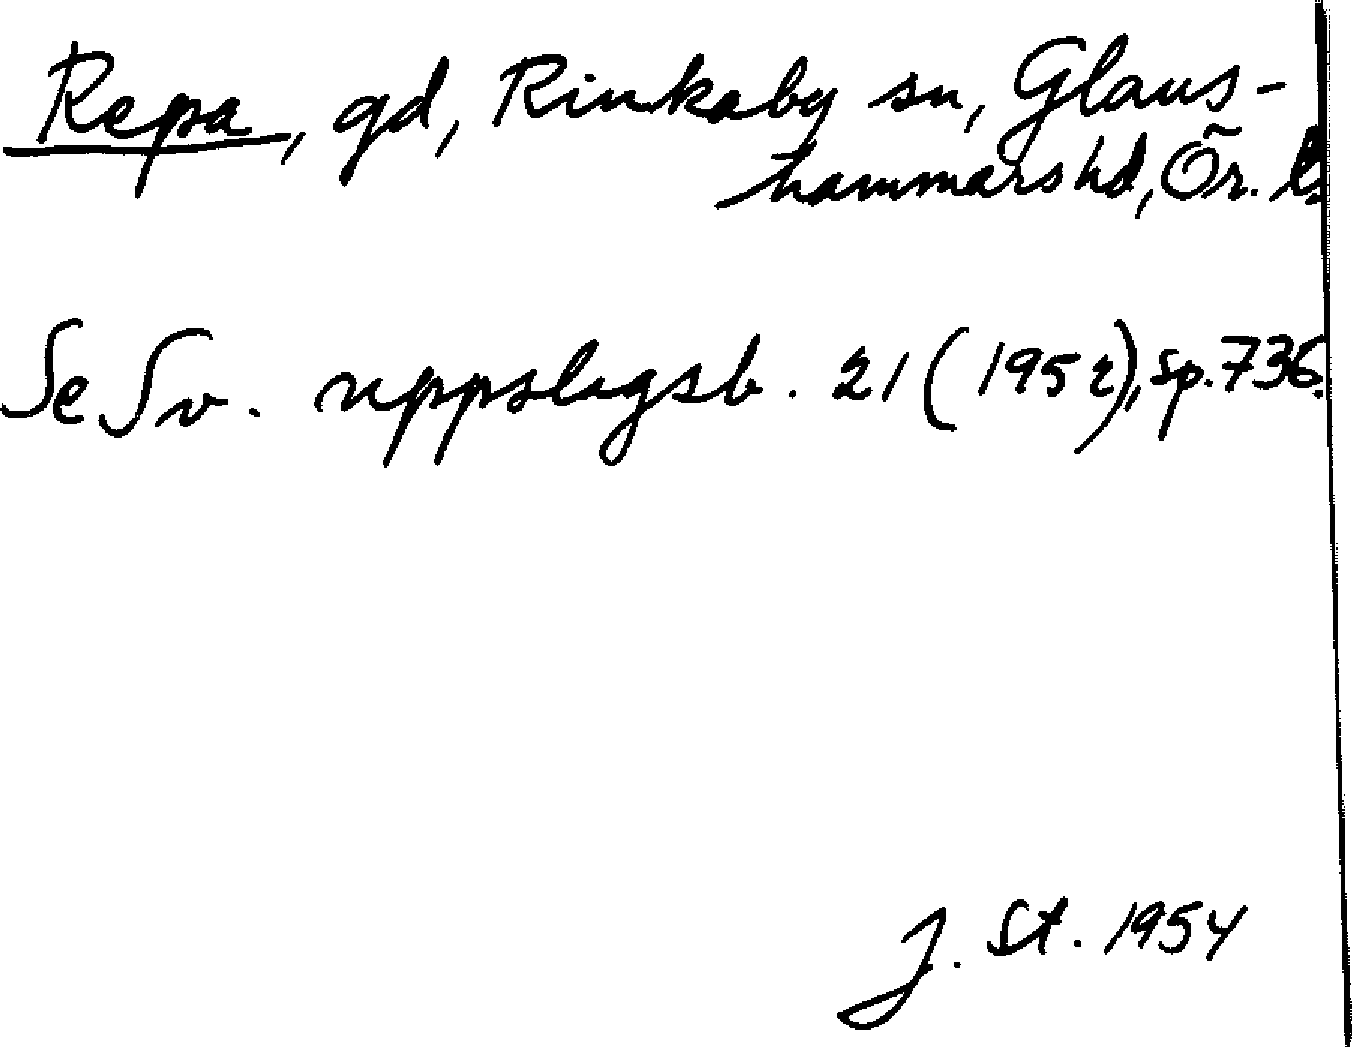 Repa, gd, Rinkaby sn, Glans-
hammars hd, Ör. l.
Se Sv. uppslagsb. 21 (1952), sp. 736.
J. St. 1954